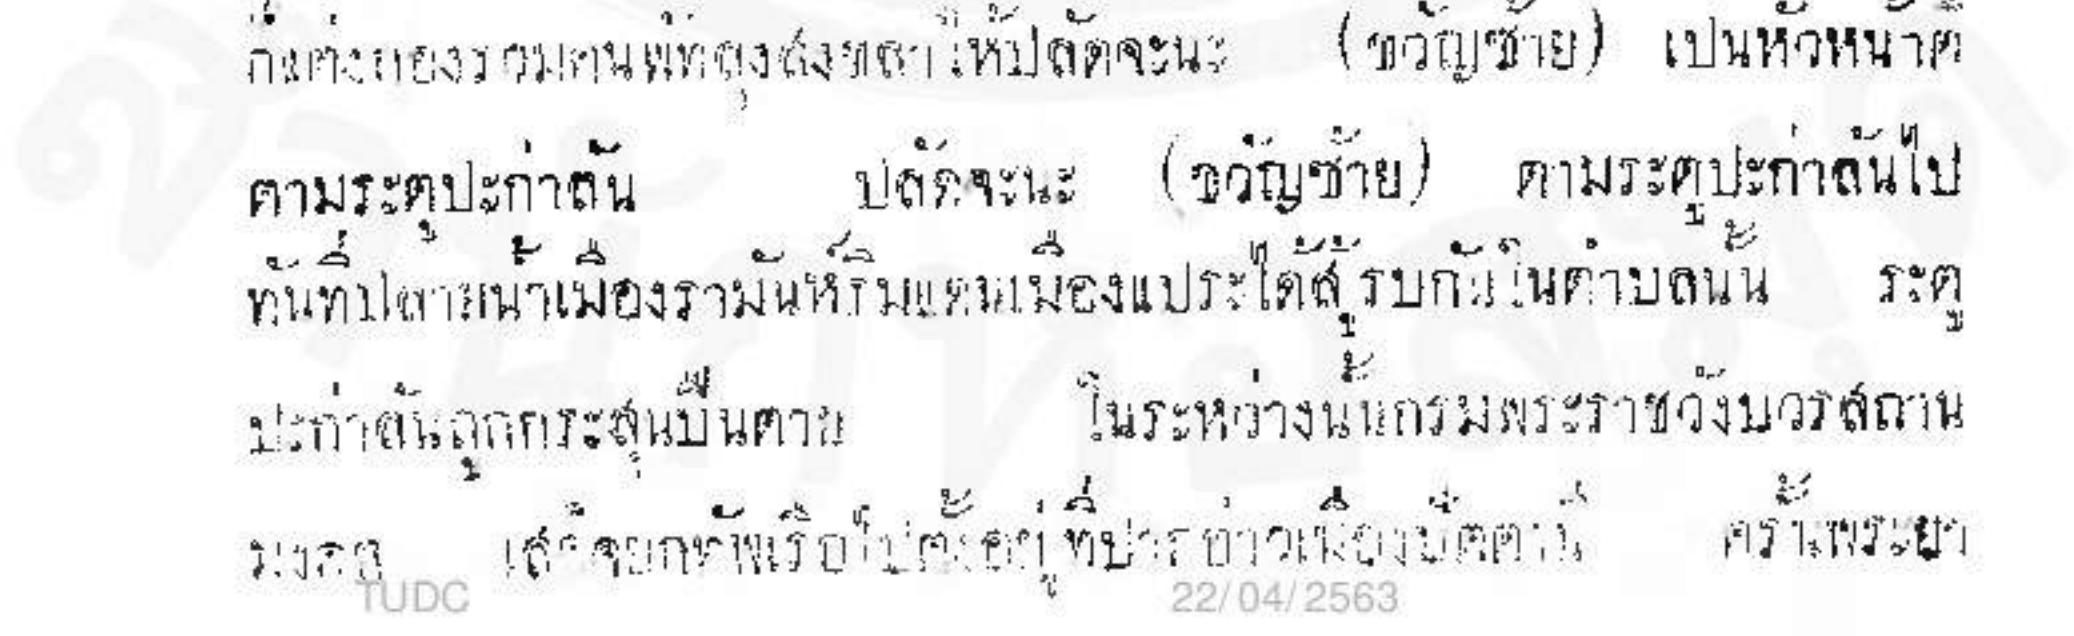 ก็แต่งกองรวมคนพัทลุงสงขลาให้ปลัดจะนะ (ขวัญซ้าย) เปนหัวหน้าตี
ตามระตูปะกาลัน ปลัดจะนะ (ขวัญซ้าย) ตามระตูปะกาลันไป
ทันที่ปลายน้ำเมืองรามันห์ริมแดนเมืองแประได้สู้รบกันในตำบลนั้น ระตู
ปะกาลันถูกกระสุนปืนตาย ในระหว่างนั้นกรมพระราชวังบวรสถาน
มงคล เสด็จยกทัพเรือไปตั้งอยู่ที่ปากอ่าวเมืองปัตตานี ครั้นพระยา
TUDC 22/04/2563